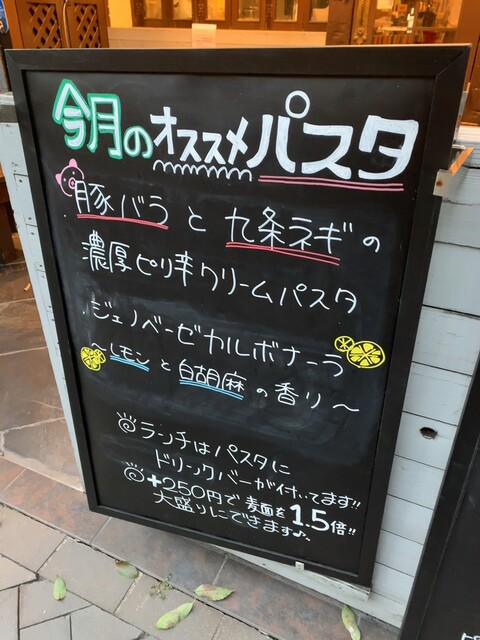 今月のオススメパスタ
豚バラと九条ネギの
濃厚ピリ辛クリームパスタ
ジェノベーゼカルボナーラ
〜レモンと白胡麻の香り〜
ランチはパスタに
ドリンクバーが付いてます!!
+250円で麦面を1.5倍!!
大盛りにできます♪